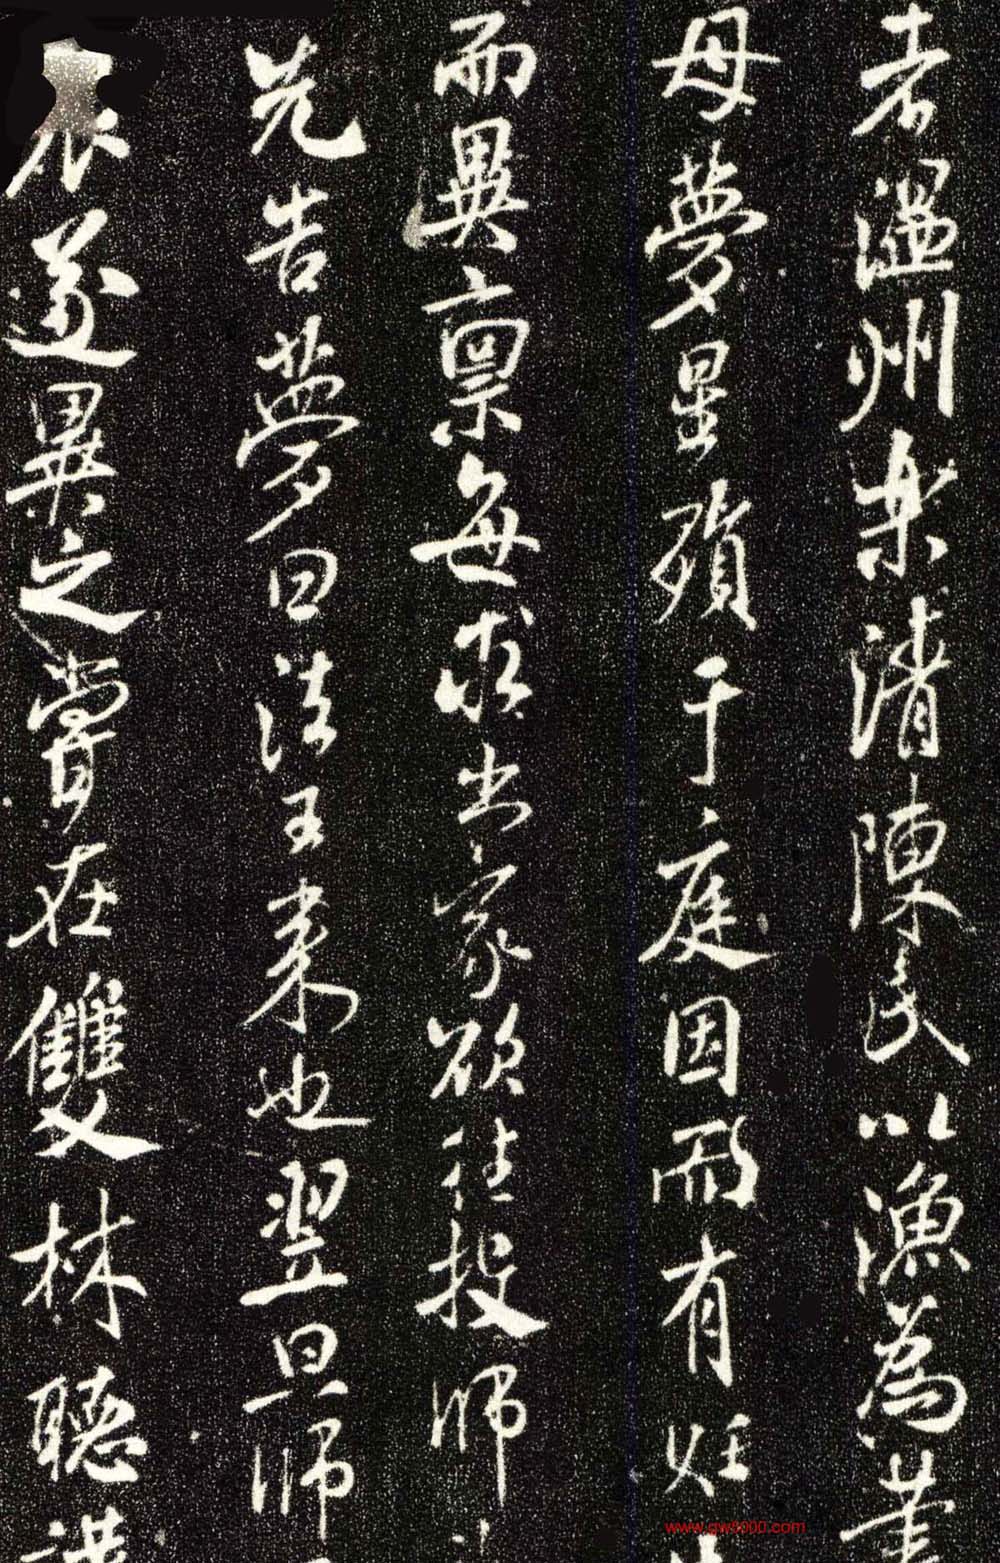 者溫州樂清陳氏以漁為業
母夢星殞于庭因而有妊
而異稟每求出家欲往投師
先告夢曰法王來也翌旦師
衣遂異之嘗在雙林聽講
www.gw5000.com